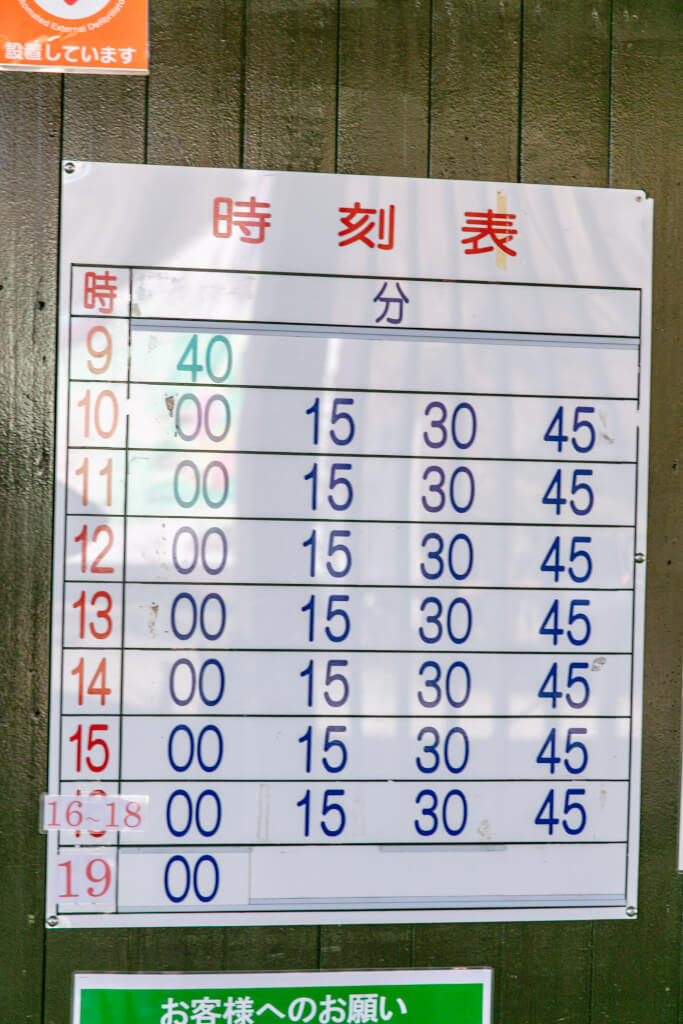 Automated External Defibrillator
設置しています
時 刻 表
時 分
9 40
10 00 15 30 45
11 00 15 30 45
12 00 15 30 45
13 00 15 30 45
14 00 15 30 45
15 00 15 30 45
16~18 00 15 30 45
19 00
お客様へのお願い